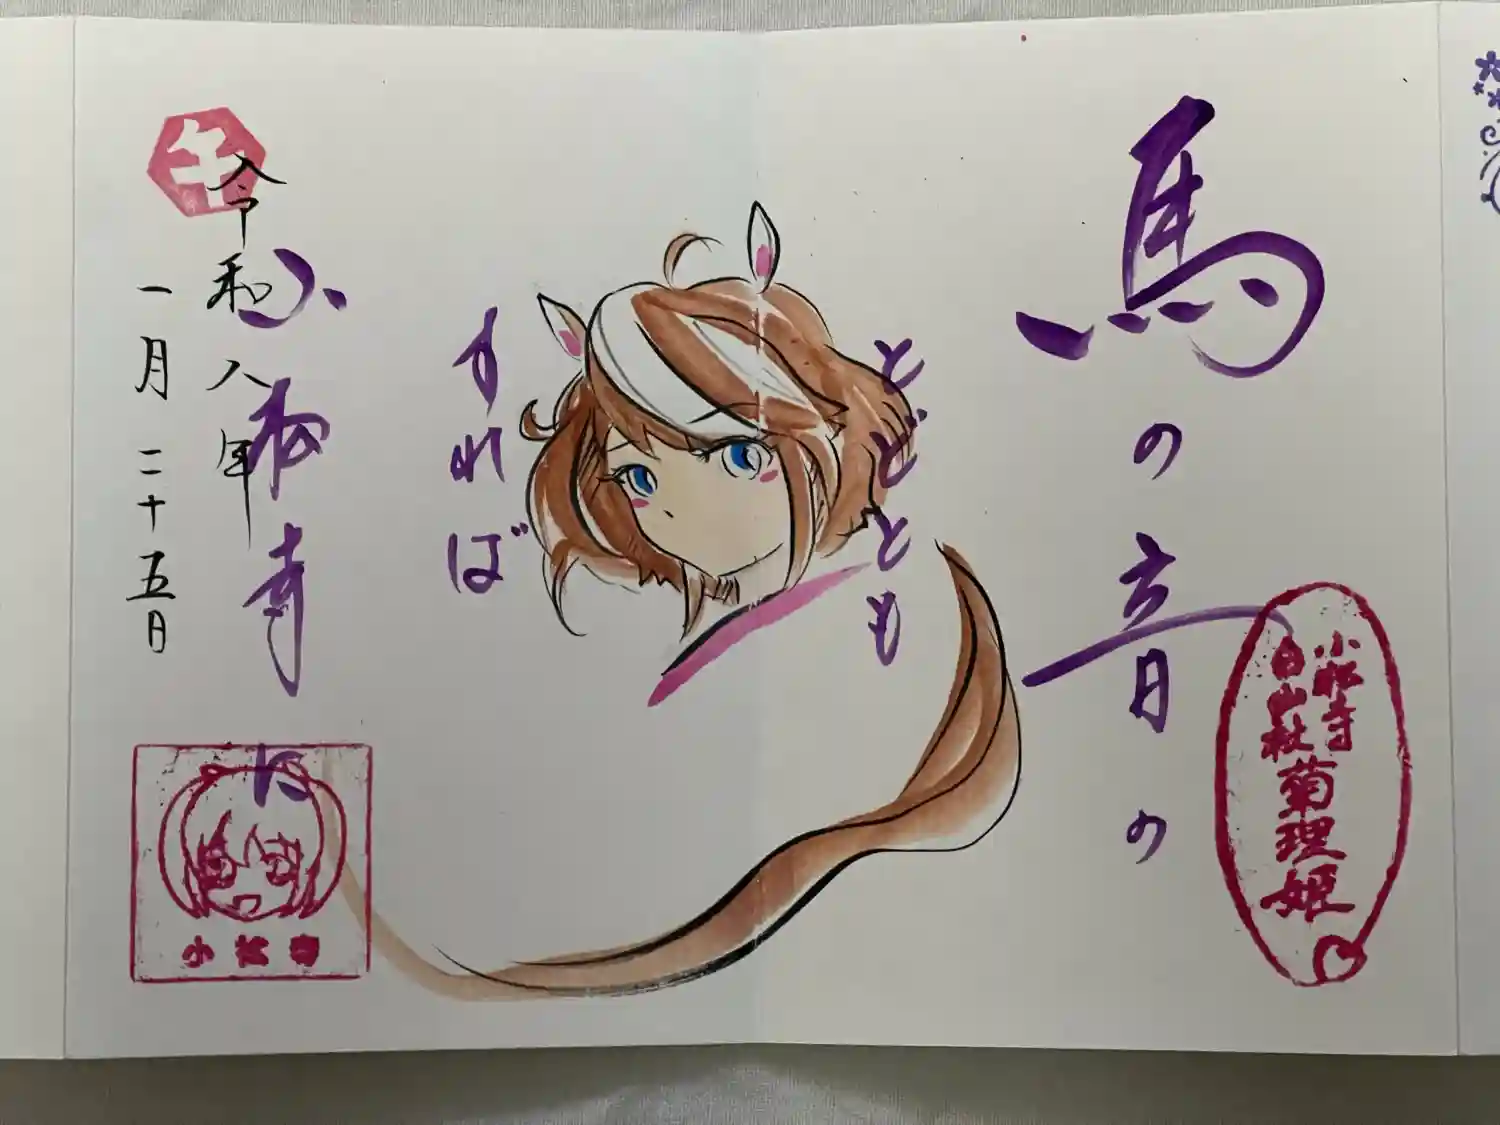 馬の音の
とどとも
すれば
小松寺に
令和八年
一月二十五日
午
小松寺
白山社
菊理姫
小松寺